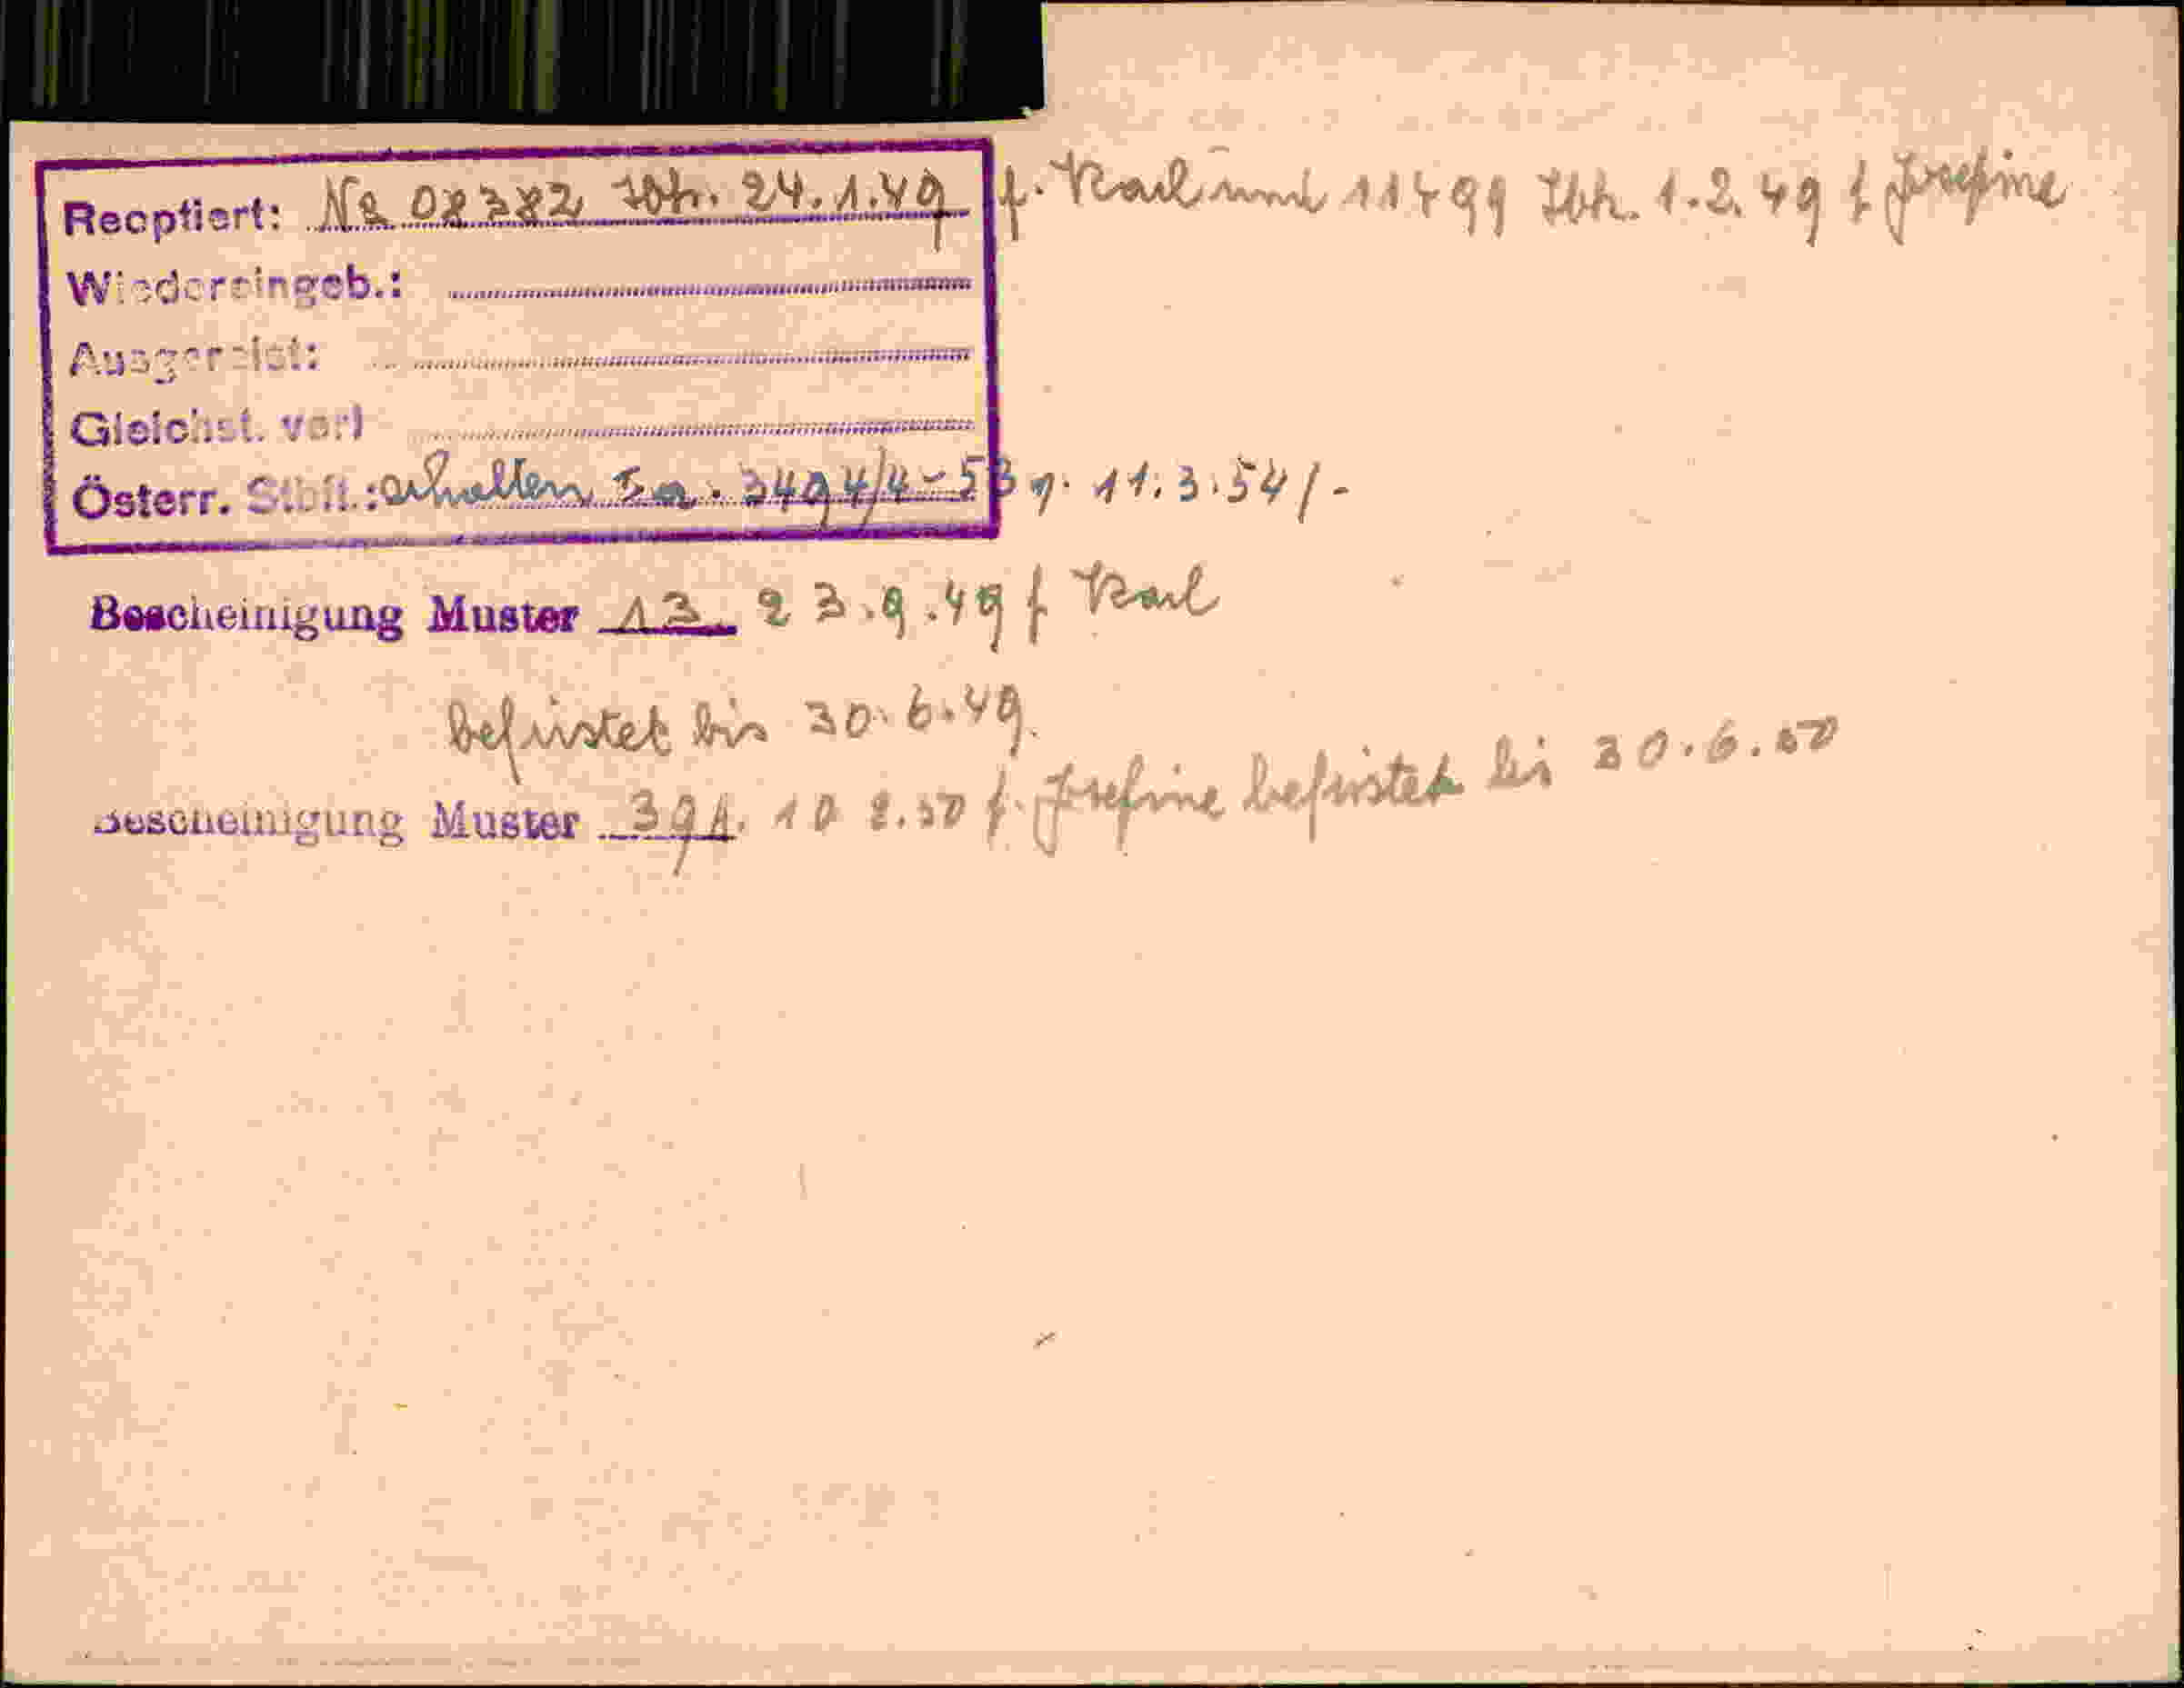 Reoptiert: No 08382 Ibk. 24.1.49 f. Karl und 11499 Ibk. 1.2.49 f Josefine
Wiedereingeb.:
Ausgereist:
Gleichst. verl
Österr. Stbft.: erhalten Ia. 3494/4-53 v. 11.3.54/-
Bescheinigung Muster 13 23.9.49 f Karl
befristet bis 30.6.49.
Bescheinigung Muster 39A. 10 2.50 f. Josefine befristet bis 30.6.50